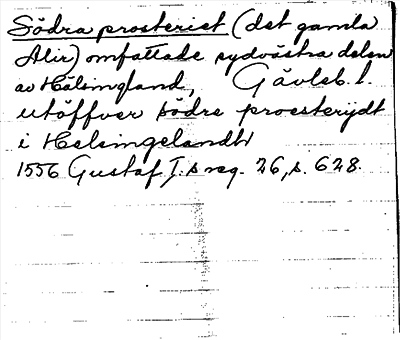 Södra prosteriet (det gamla
Alir) omfattade sydvästra delen
av Hälsingland, Gävleb. l.
utöffver södre proesterijdt
i Helsingelandh
1556 Gustaf I.s reg. 26, s. 628.